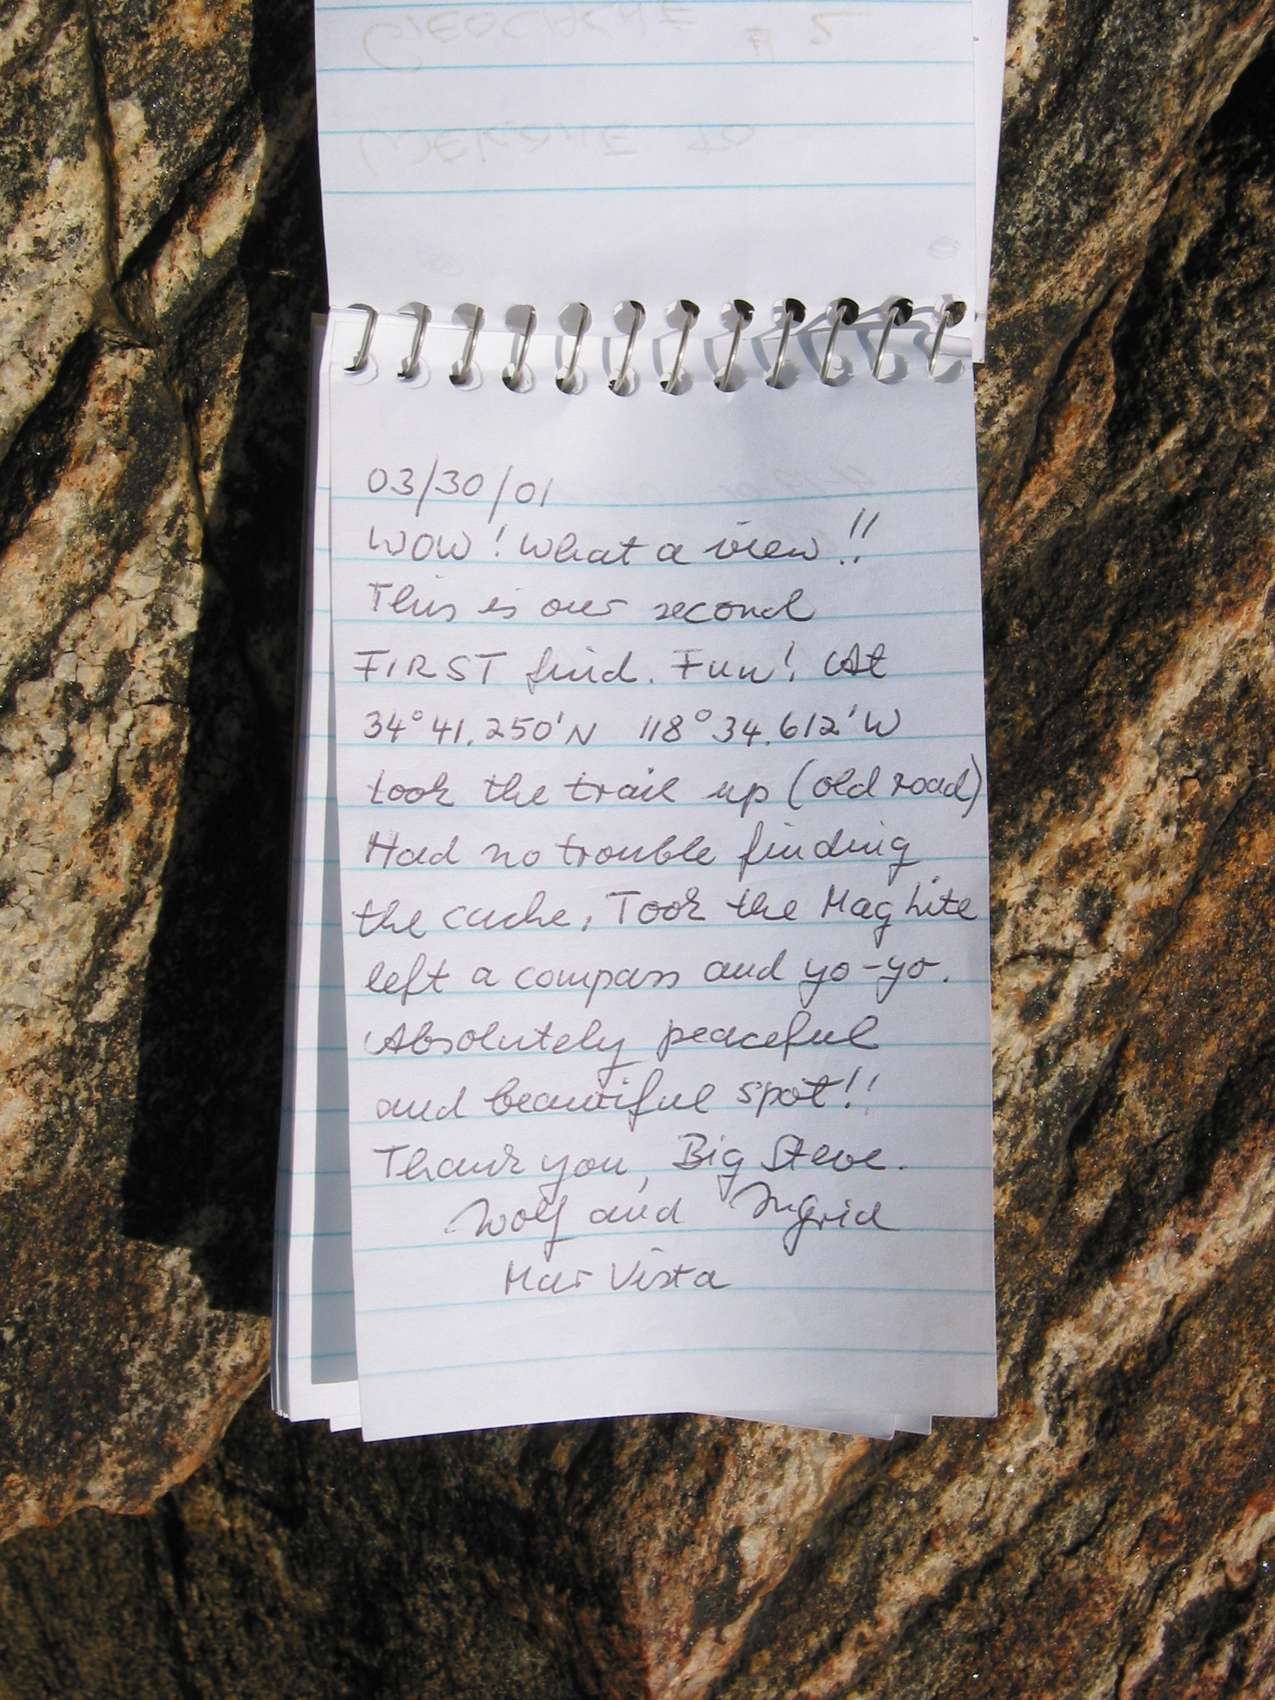 03/30/01
WOW! What a view!!
This is our second
FIRST find. Fun! At
34°41.250'N 118°34.612'W
took the trail up (old road)
Had no trouble finding
the cache. Took the Mag Lite
left a compass and yo-yo.
Absolutely peaceful
and beautiful spot!!
Thank you, Big Steve.
Wolf and Ingrid
Mar Vista